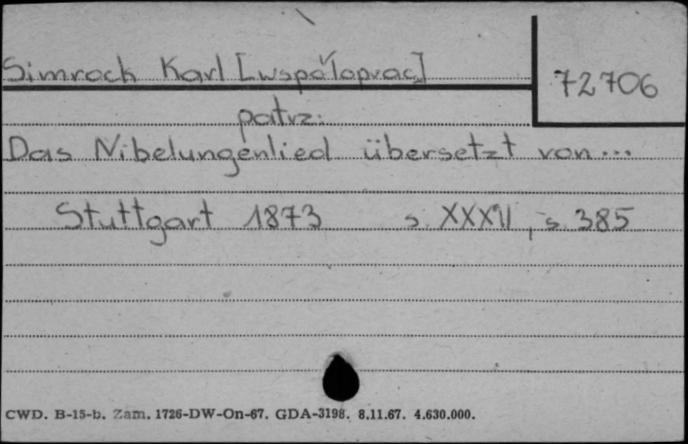 Simrock Karl [współoprac]
72706
patrz:
Das Nibelungenlied übersetzt von...
Stuttgart 1873 s. XXXVI, s. 385
CWD. B-15-b. Zam. 1726-DW-On-67. GDA-3198. 8.11.67. 4.630.000.